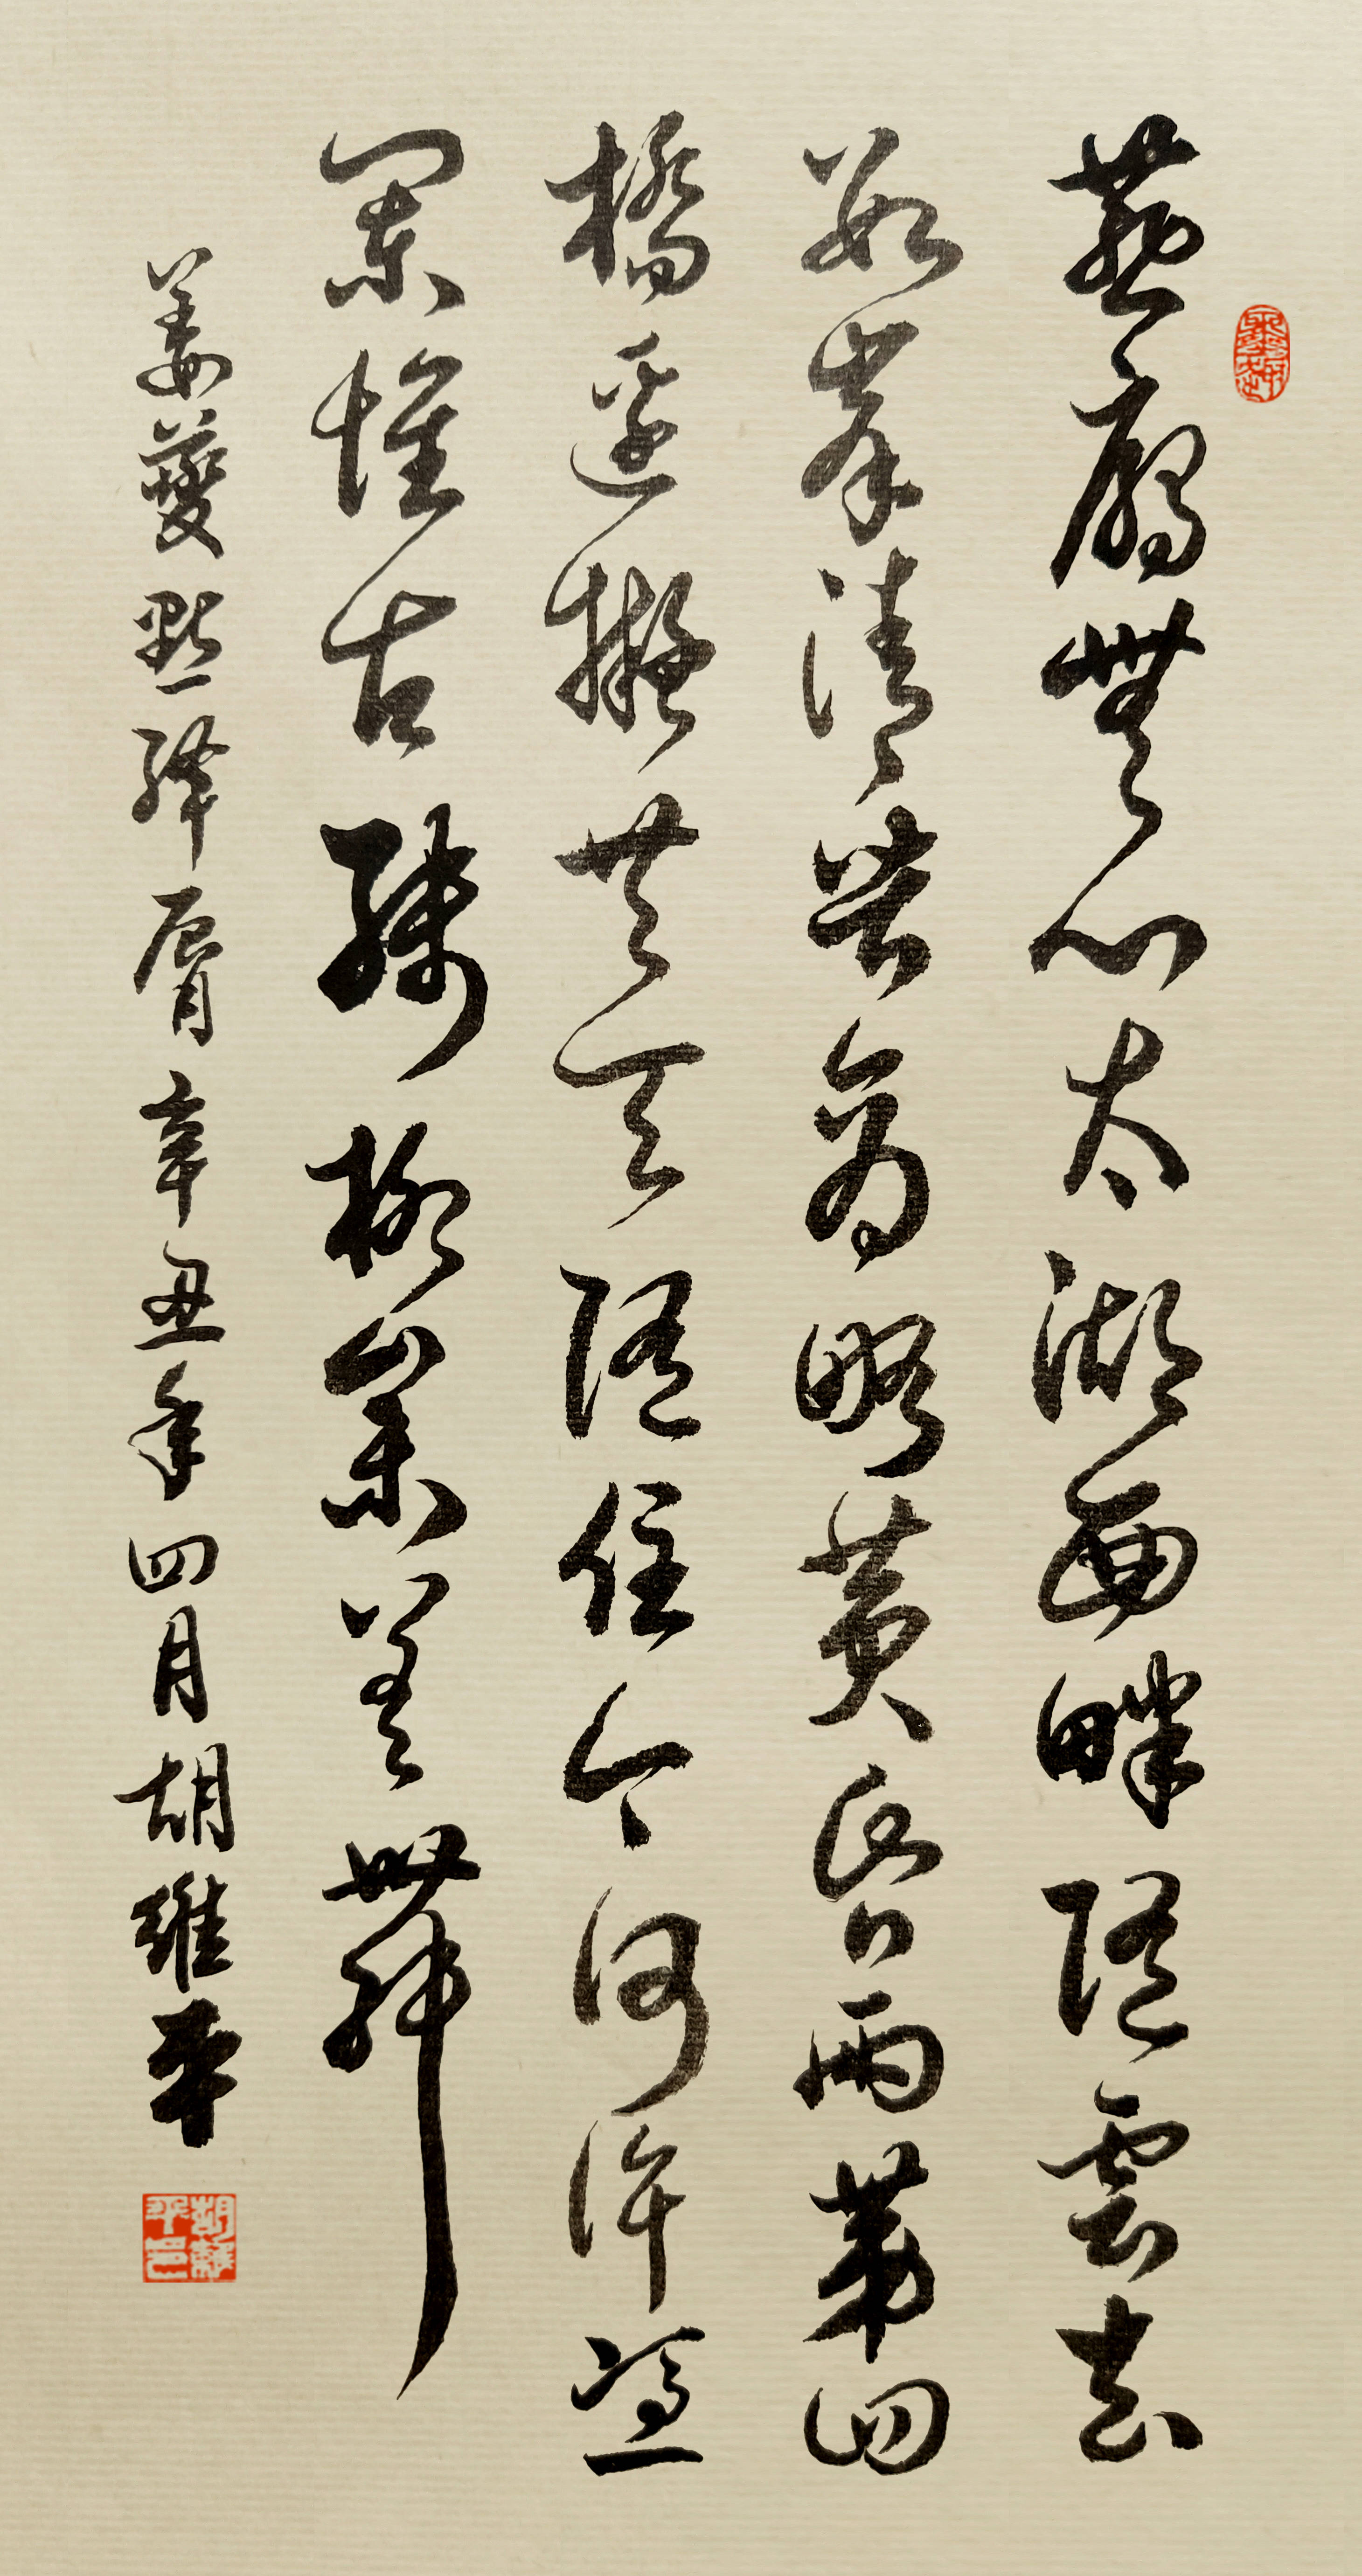 燕鴈無心太湖西畔随雲去
數峯清苦商略黄昏雨第四
橋邊擬共天随住今何許憑
闌懷古殘柳參差舞
姜夔點絳脣辛丑年四月胡維平
胡維平印